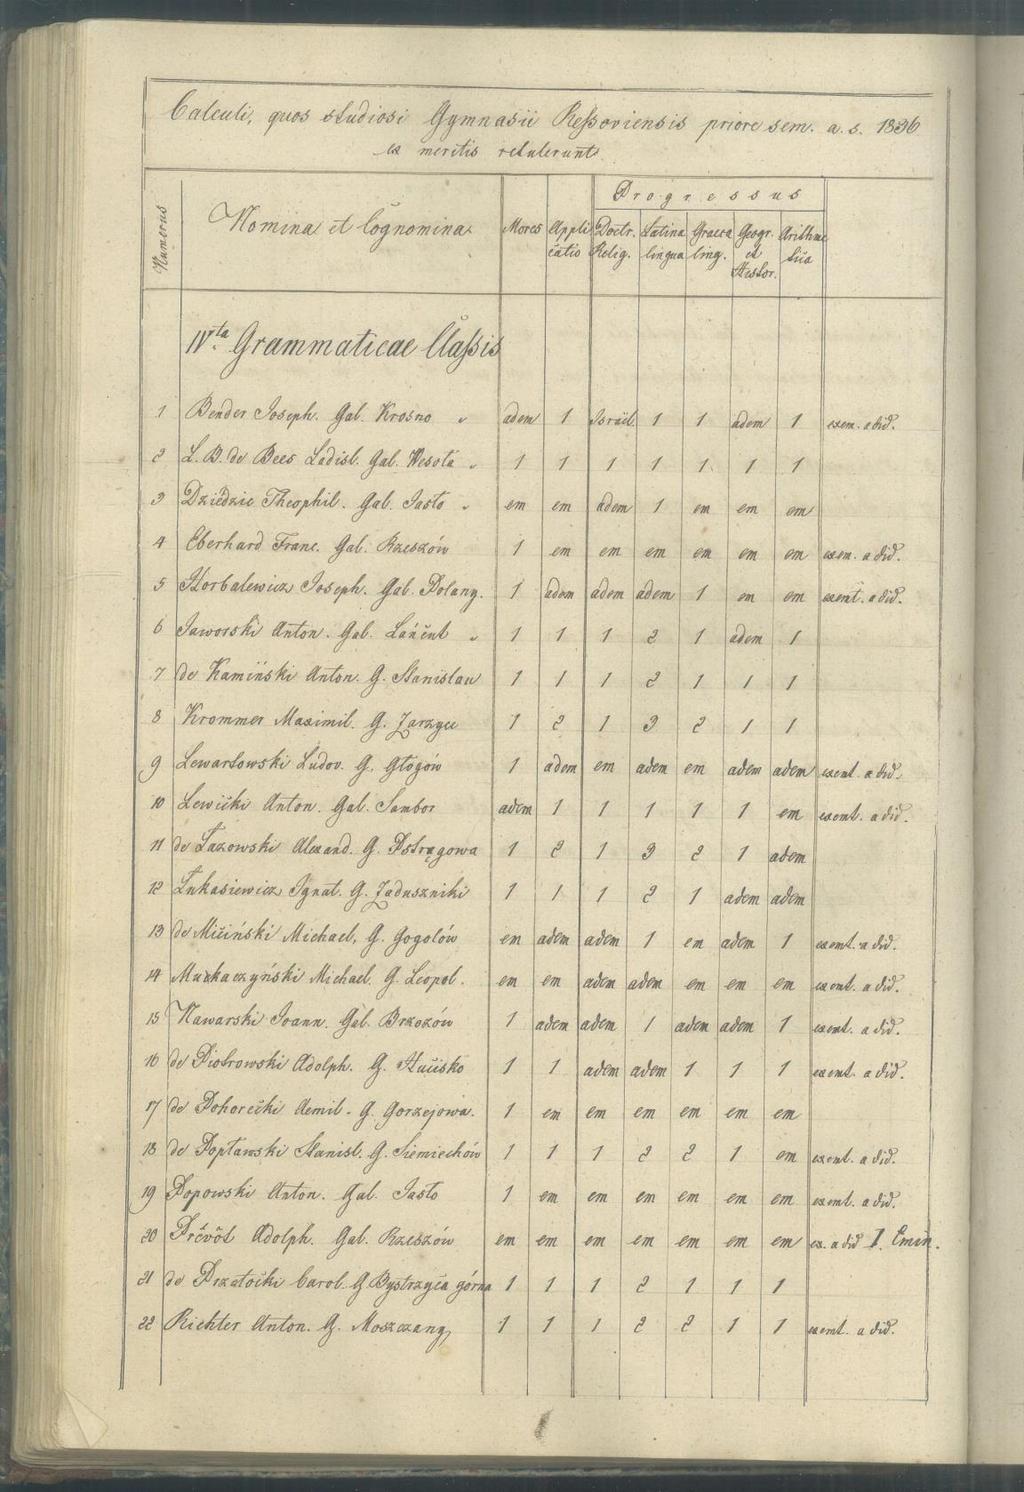 Calculi, quos studiosi Gymnasii Reßoviensis priore sem. a. s. 1836
ex meritis retulerunt
Numerus Nomina et Cognomina Mores Applicatio Progressus
Doctr. Relig. Latina lingua Graeca ling. Geogr. et Histor. Arithmetica
IVta. Grammaticae Claßis
1 Bender Joseph. Gal. Krosno " adem 1 Israël. 1 1 adem 1 exem. a did.
2 L. B. de Bees Ladisl. Gal. Wesoła " 1 1 1 1 1 1 1
3 Dziedzic Theophil. Gal. Jasło " em em adem 1 em em em
4 Eberhard Franc. Gal. Rzeszów 1 em em em em em em exem. a did.
5 Horbalewicz Joseph. Gal. Polany. 1 adem adem adem 1 em em exemt. a did.
6 Jaworski Anton. Gal. Łańcut " 1 1 1 2 1 adem 1
7 de Kamiński Anton. G. Stanislau 1 1 1 2 1 1 1
8 Krommer Maximil. G. Jarzyce 1 2 1 3 2 1 1
9 Lewartowski Ludov. G. Głogów 1 adem em adem em adem adem exemt. a did.
10 Lewicki Anton. Gal. Sambor adem 1 1 1 1 1 em exemt. a did.
11 de Łazowski Alexand. G. Pstrągowa 1 2 1 3 2 1 adem
12 Łukasiewicz Ignat. G. Zaduszniki 1 1 1 2 1 adem adem
13 de Miciński Michael. G. Gogolów em adem adem 1 em adem 1 exemt. a did.
14 Muzkaczyński Michael. G. Leopol. em em adem adem em em em exemt. a did.
15 Nawarski Joann. Gal. Brzozów 1 adem adem 1 adem adem 1 exemt. a did.
16 de Piotrowski Adolph. G. Hucisko 1 1 adem adem 1 1 1 exemt. a did.
17 de Pohorecki Aemil. G. Gorzejowa. 1 em em em em em em
18 de Popławski Stanisl. G. Siemiechów 1 1 1 2 2 1 em exemt. a did.
19 Popowski Anton. Gal. Jasło 1 em em em em em em exemt. a did.
20 Prévôt Adolph. Gal. Rzeszów em em em em em em em ex. a did I. Emin.
21 de Przałocki Carol. G Bystrzyca górna 1 1 1 2 1 1 1
22 Richter Anton. G. Moszczany 1 1 1 2 2 1 1 exemt. a did.